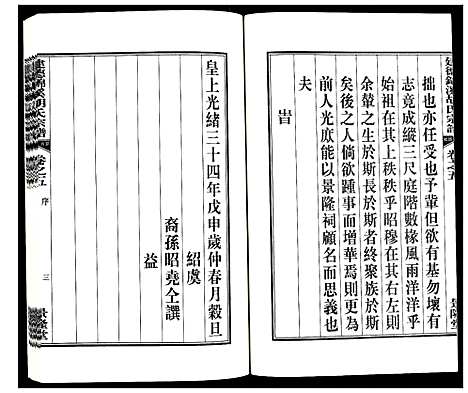 拙也亦任受也予輩但欲有基勿壞有
志竟成縱三尺庭階數椽風雨洋洋乎
始祖在其上秩秩乎昭穆在其右左則
余輩之生於斯長於斯者終聚族於斯
矣後之人倘欲踵事而增華焉則更為
前人光庶能以景隆祠顧名而思義也
夫
旹
皇上光緒三十四年戊申歲仲春月穀旦
紹虞
裔孫昭堯仝譔
益
胡氏宗譜
卷之五
序
三
景隆堂